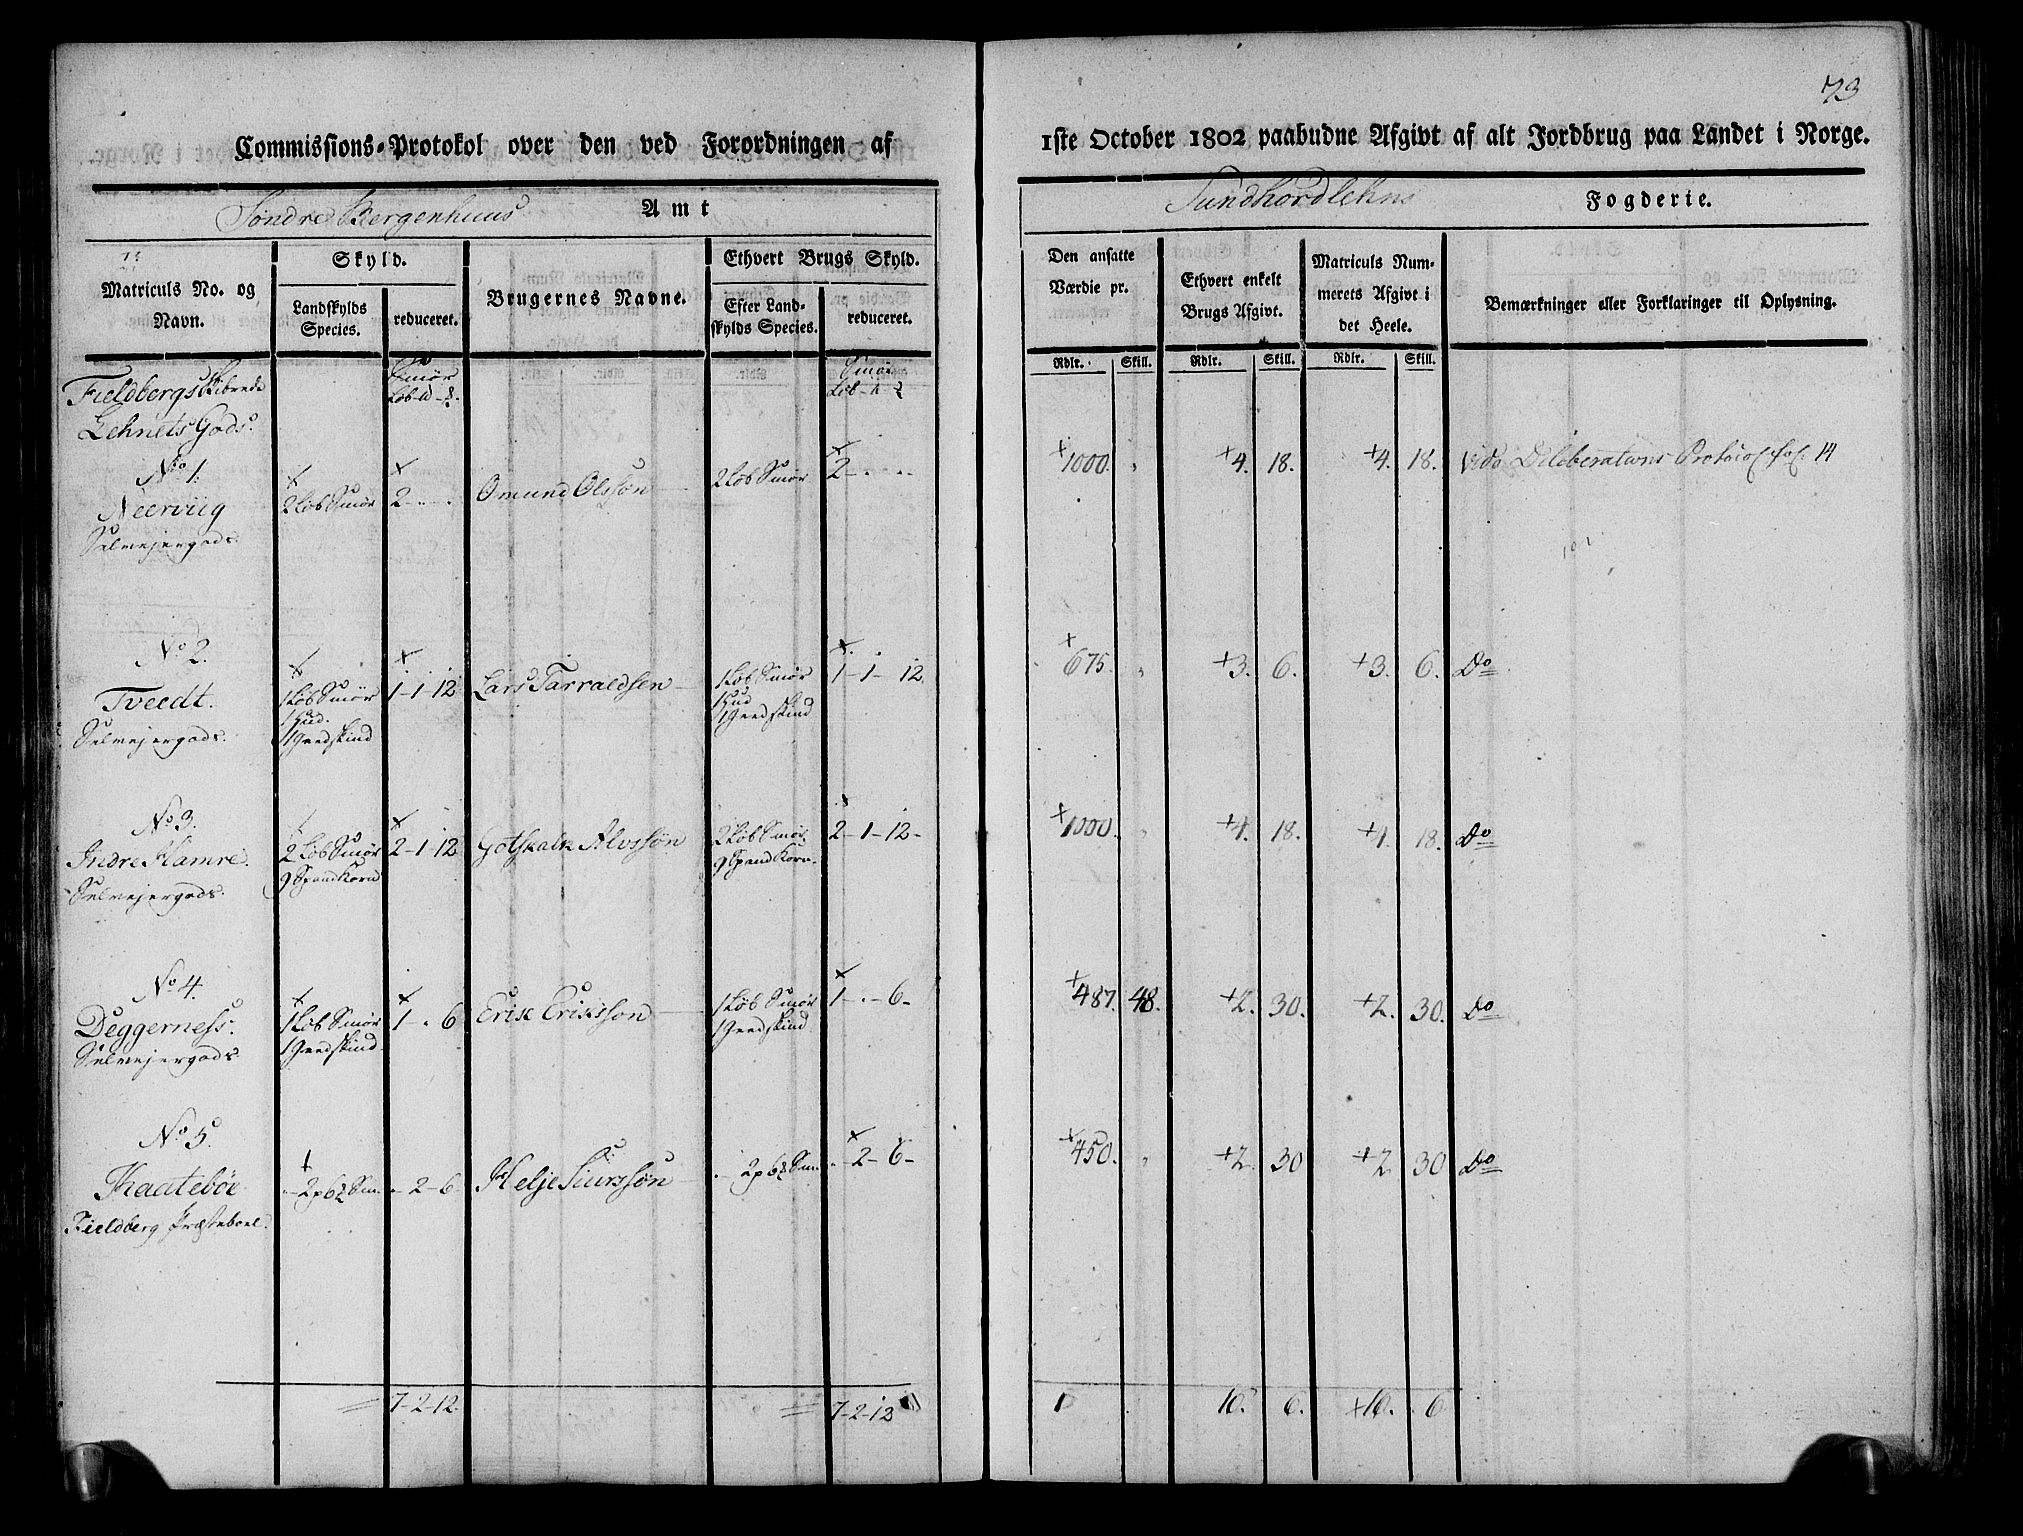 73
Commissions-Protokol over den ved Forordningen af
1ste October 1802 paabudne Afgivt af alt Jordbrug paa Landet i Norge.
Søndre Bergenhuus Amt
Sundhordlehns Fogderie.
Matriculs No. og Navn.
Skyld.
Landskylds Species.
reduceret.
Brugernes Navne.
Ethvert Brugs Skyld.
Efter Landskylds Species.
reduceret.
Den ansatte Værdie pr.
Ethvert enkelt Brugs Afgivt.
Matriculs Nummerets Afgivt i det Heele.
Bemærkninger eller Forklaringer til Oplysning.
Rdlr. Skill. Rdlr. Skill. Rdlr. Skill.
Fieldbergs Skibrede
Lehnets Gods.
Smør
Smør
No 1. Neerviig Selvejergods.
2 Løb Smør 2 - " - " Omund Olssøn 2 Løb Smør 2 - " - "
+1000. " +4. 18. +4. 18. Vide Deliberations Protocol fol. 14
No 2. Tveedt. Selvejergods.
1 Løb Smør 1 Hud. 1 Geedskind 1-1-12 Lars Tarraldsen 1 Løb Smør 1 Hud 1 Geedskind 1-1-12
+675. " +3. 6. +3. 6. Do
No 3. Indre Hamre. Selvejergods.
2 Løb Smør 9 Spand Korn 2-1-12 Gotskalk Alvssøn 2 Løb Smør 9 Spand Korn 2-1-12-
+1000. " +4. 18. +4. 18. Do
No 4. Deggerness. Selvejergods.
1 Løb Smør 1 Geedskind 1 - " 6 Erik Erikssøn 1 Løb Smør 1 Geedskind 1 - " - 6-
+487. 48. +2. 30. +2. 30. Do
No 5. Kaatebøe Fieldberg Præsteboel.
" - 2-6 Helje Siurssøn " - 2-6-
+450. " +2. 30 +2. 30 Do
7-2-12.
7-2-12
16. 6. +16. 6